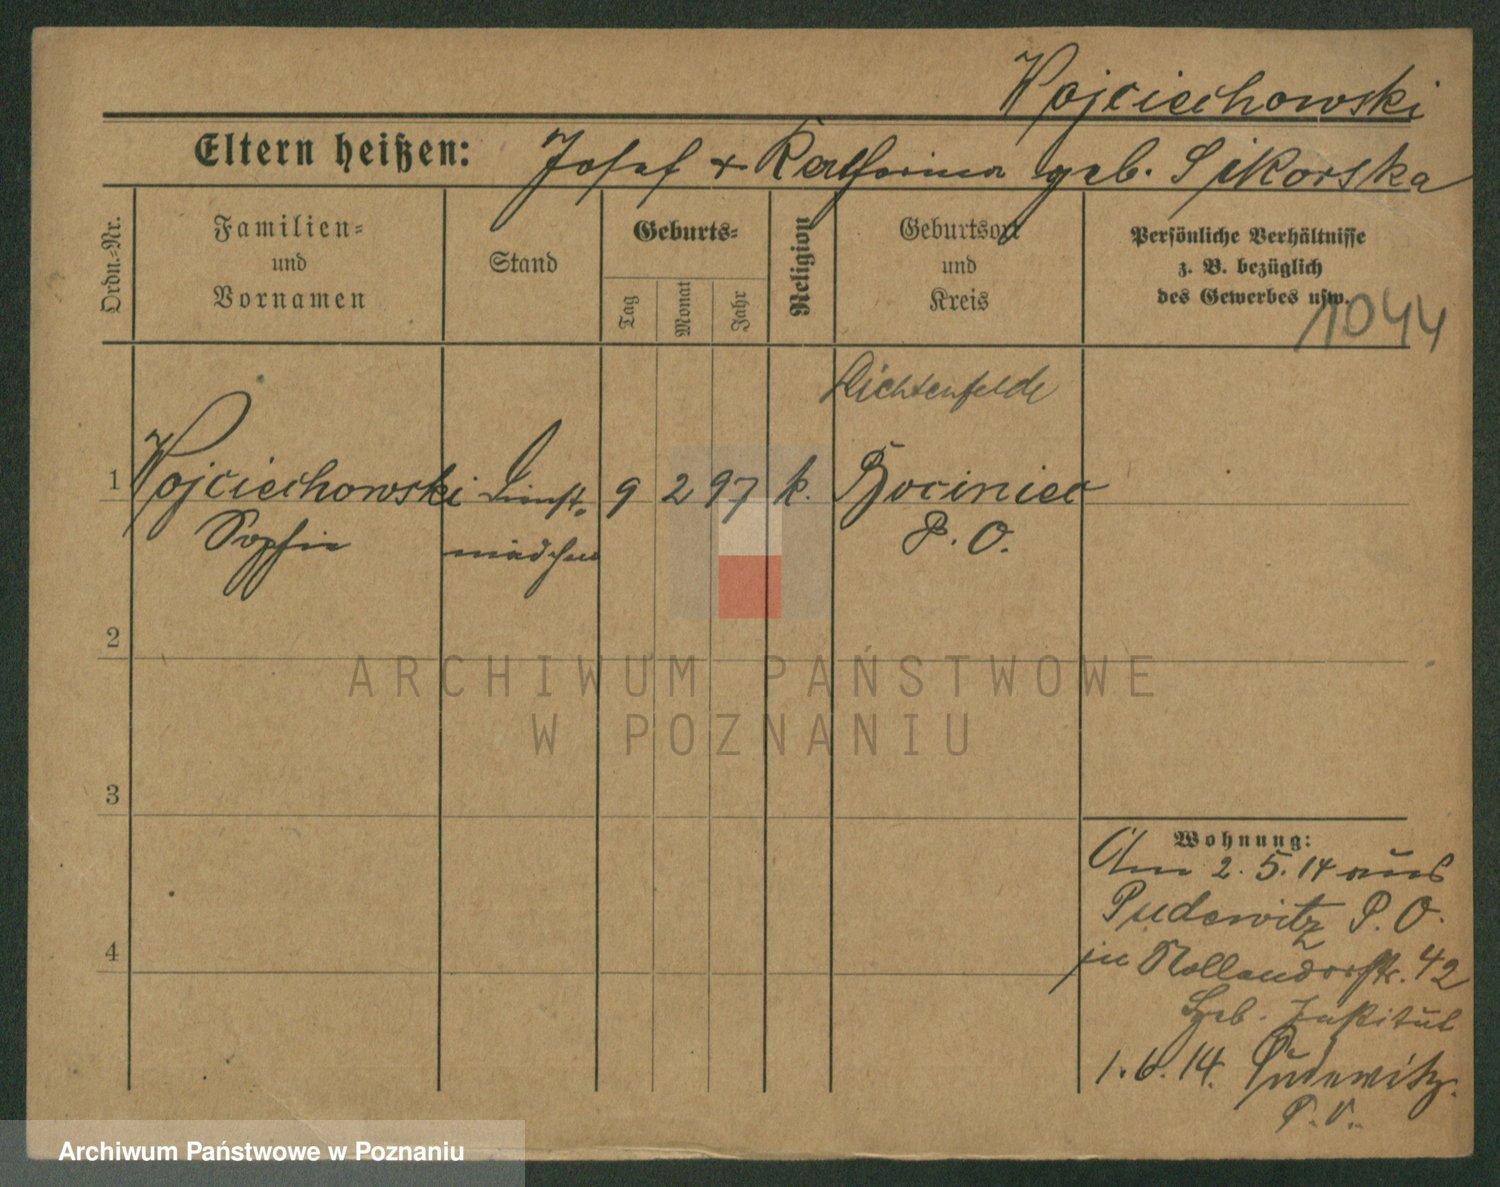 Wojciechowski
Eltern heißen: Josef + Katharina geb. Sikorska
Ordn.-Nr.
Familien-
und
Vornamen
Stand
Geburts-
Tag
Monat
Jahr
Religion
Geburtsort
und
Kreis
Persönliche Verhältnisse
z. B. bezüglich
des Gewerbes usw.
1044
Lichtenfelde
1 Wojciechowski Dienst- 9 2 97 k. Bociniec
Sophie mädchen P. O.
2
3
4
Wohnung:
Am 2. 5. 14 aus
Pudewitz P. O.
in Nollendorfstr. 42
Geb. Institut
1. 6. 14. Pudewitz.
P. O.
ARCHIWUM PAŃSTWOWE
W POZNANIU
Archiwum Państwowe w Poznaniu